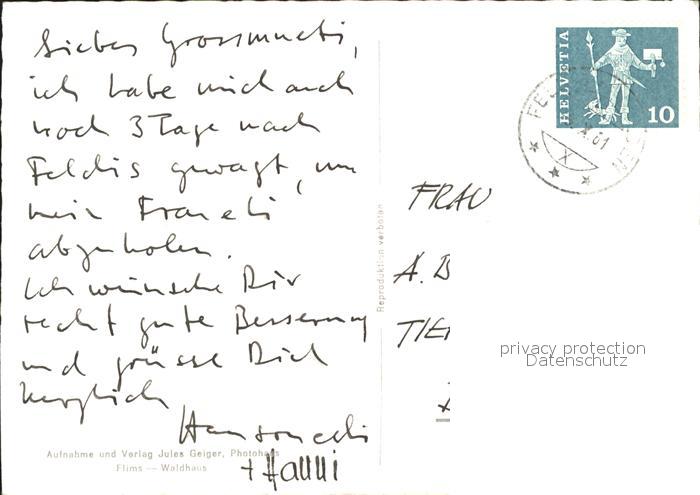 Liebes Grossmueti,
ich habe mich auch
noch 3 Tage nach
Feldis gewagt, um
mein Franeli
abzuholen.
Ich wünsche Dir
recht gute Besserung
und grüsse Dich
herzlich
Hansruedi
+ Hanni
Aufnahme und Verlag Jules Geiger, Photohaus
Flims — Waldhaus
Reproduktion verboten
HELVETIA
10
X
FRAU
A. B
TIE
privacy protection
Datenschutz